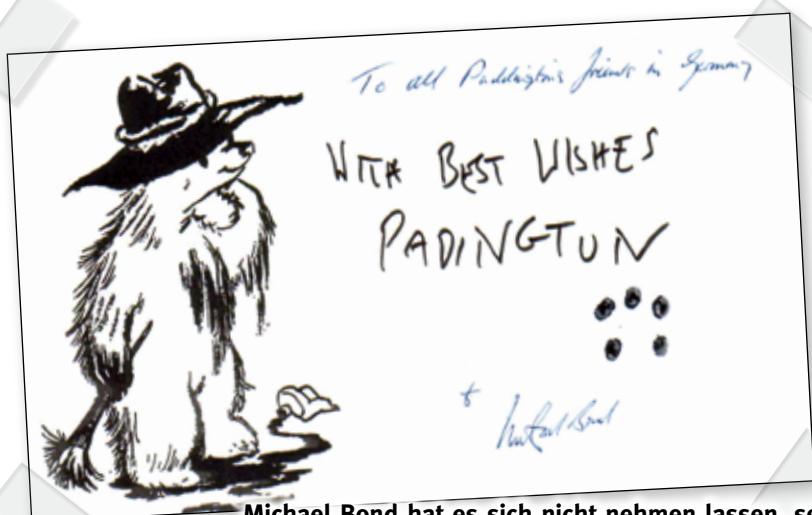 To all Paddington's friends in Germany
WITH BEST WISHES
PADINGTUN
+ Michael Bond
Michael Bond hat es sich nicht nehmen lassen, se